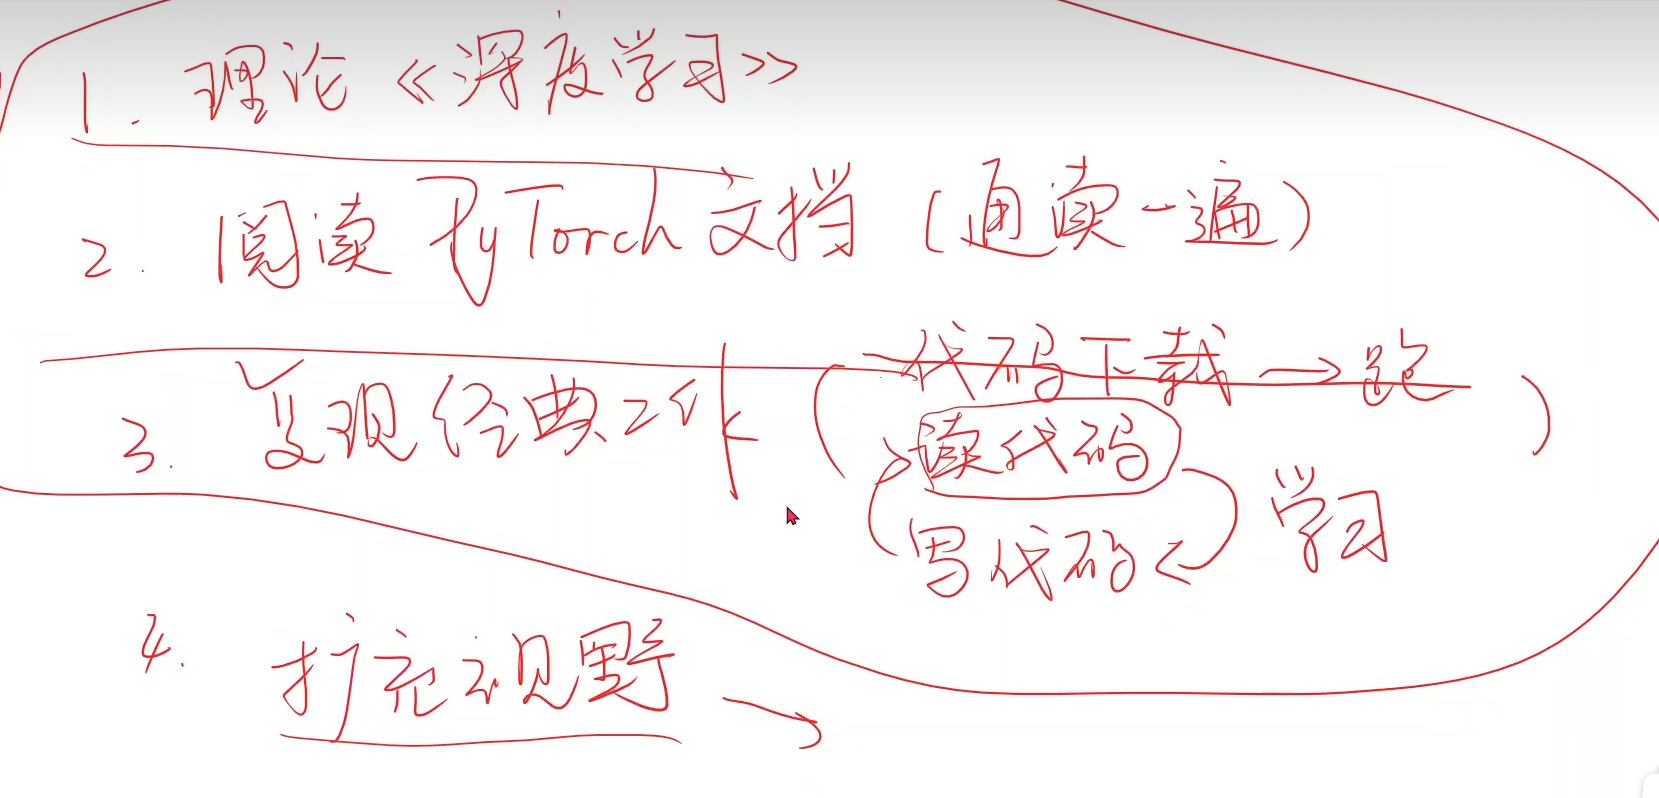 1. 理论《深度学习》
2. 阅读 PyTorch 文档（通读一遍）
3. 复现经典工作（代码下载 → 跑
读代码
写代码 学习）
4. 扩充视野 →